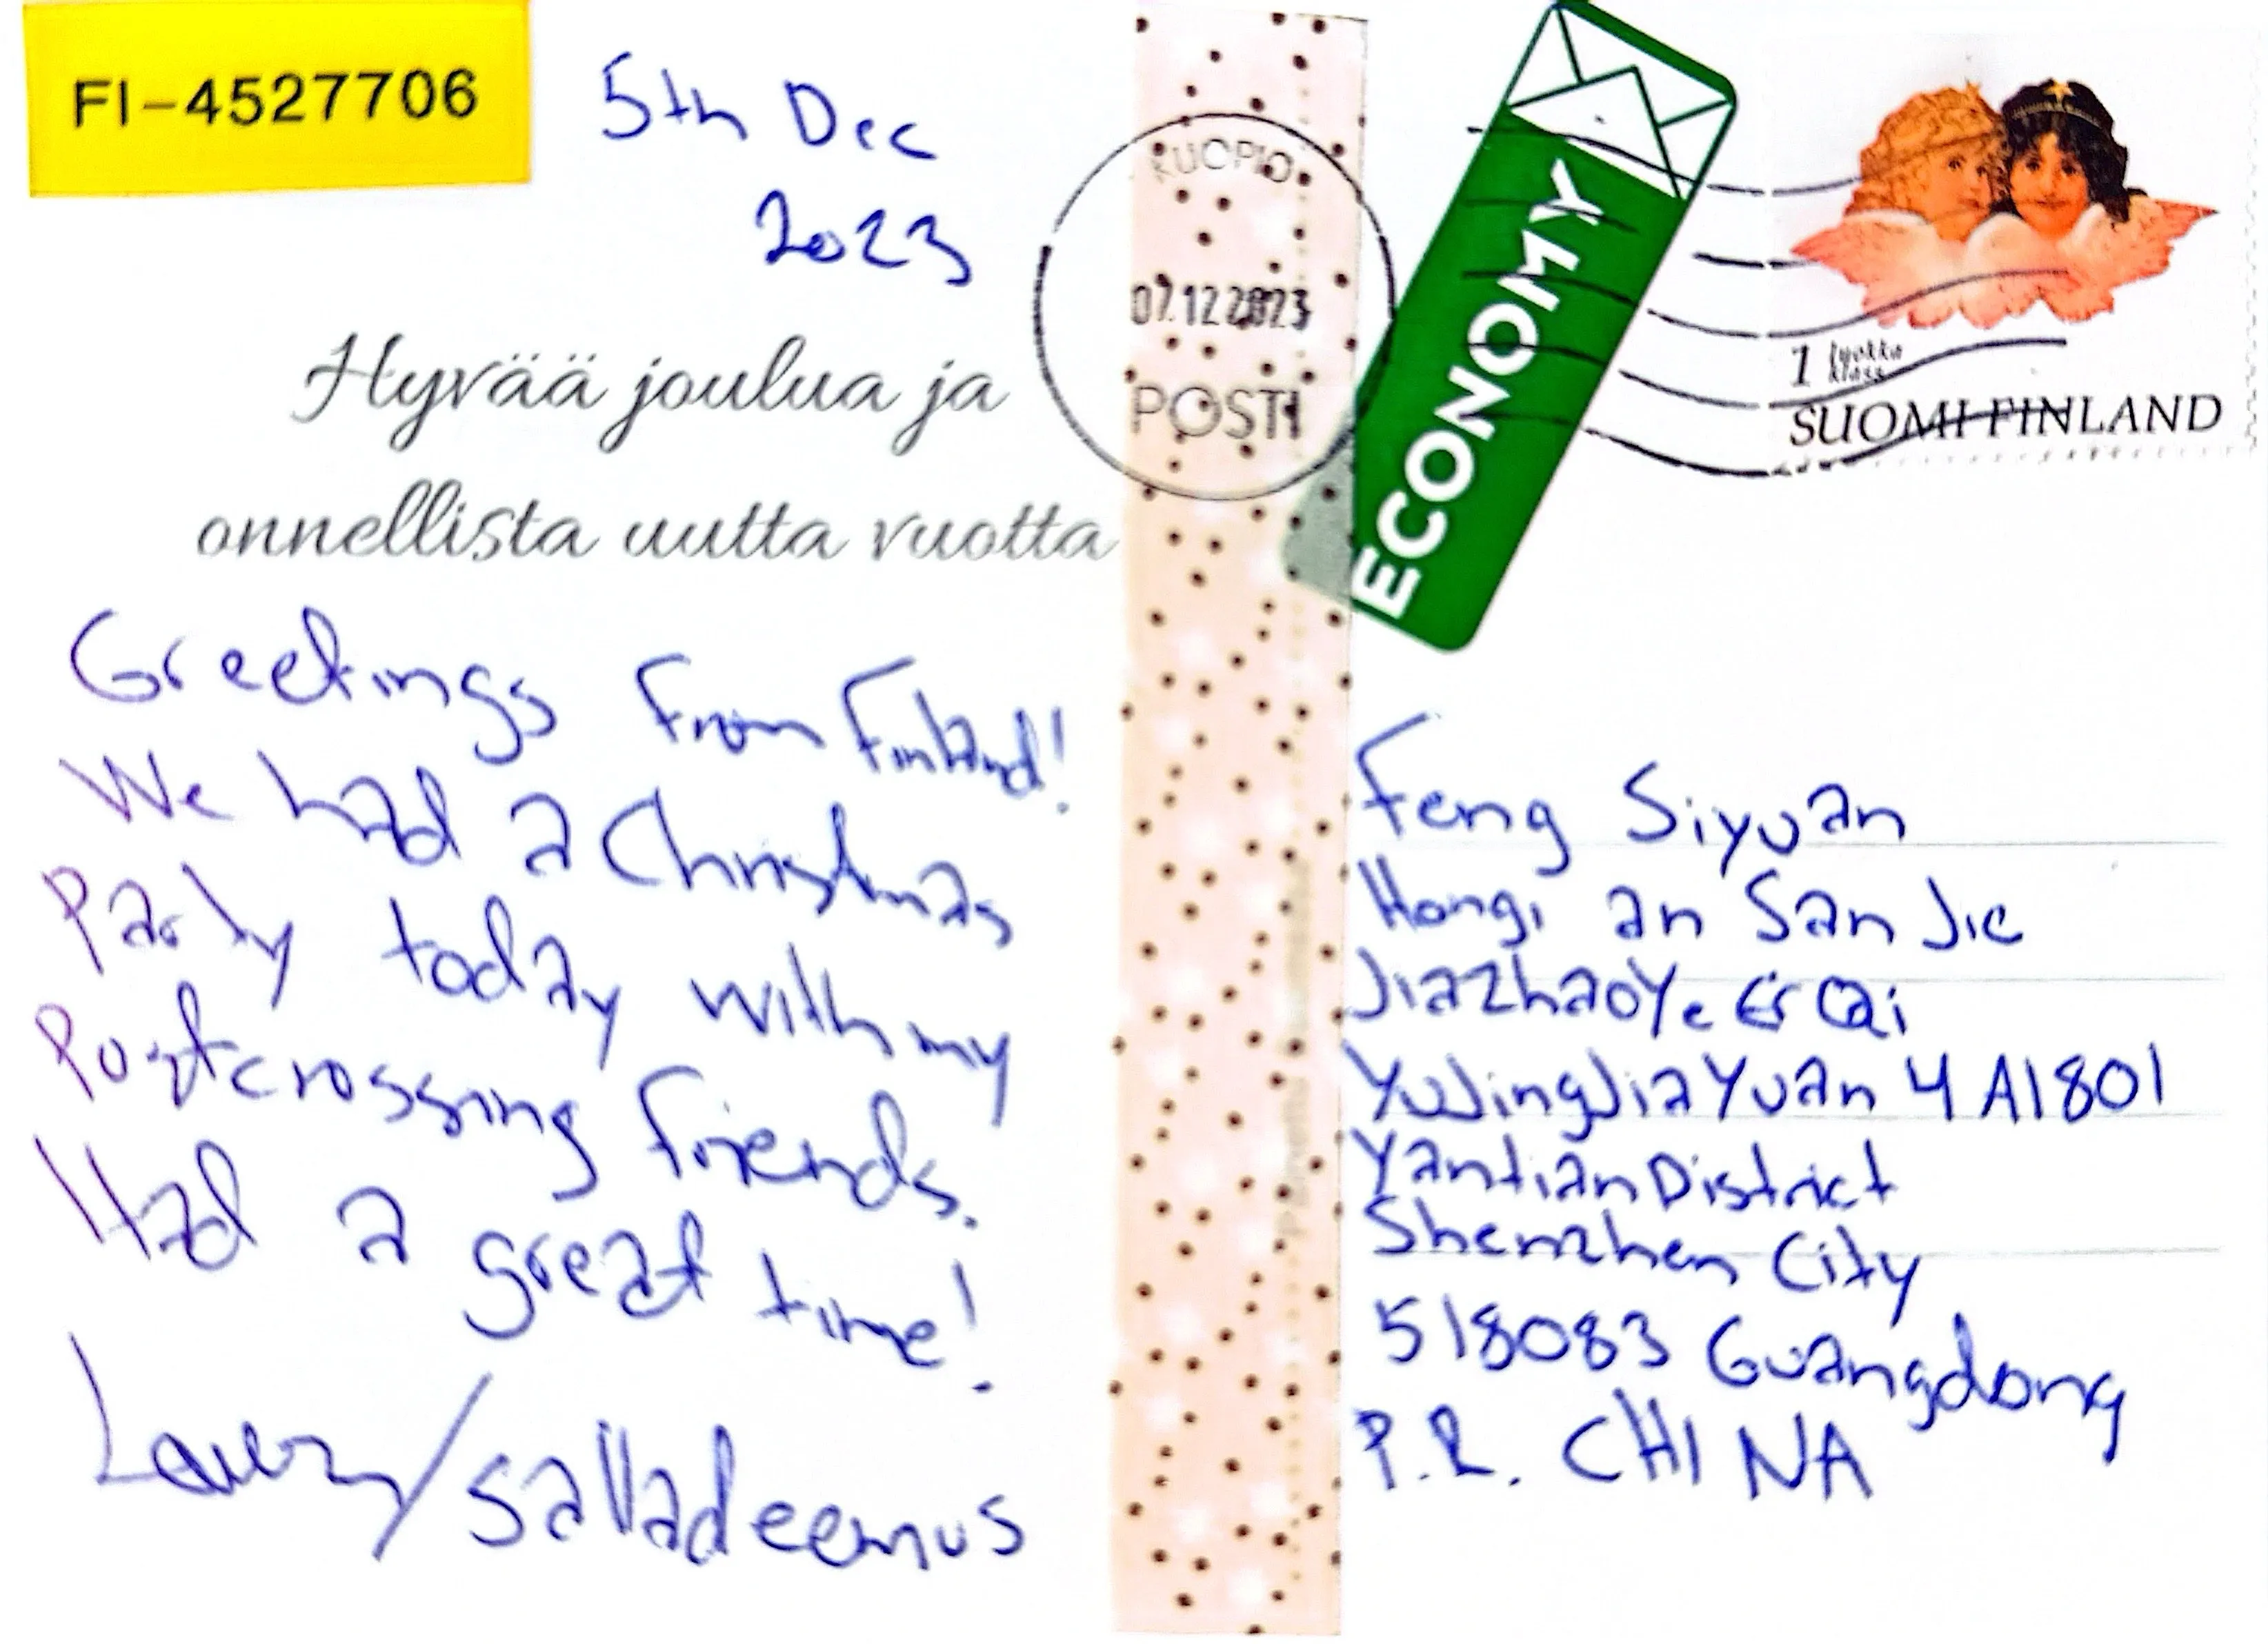 FI-4527706
5th Dec
2023
Hyvää joulua ja
onnellista uutta vuotta
Greetings from Finland!
We had a Christmas
Party today with my
Postcrossing friends.
Had a great time!
/salladeemus
KUOPIO
07.12.2023
POSTI
ECONOMY
1 luokka
klass
SUOMI FINLAND
Feng Siyuan
Hongi an San Jie
JiaZhaoYe Er Qi
YuJingJiaYuan 4 A1801
Yantian District
Shenzhen City
518083 Guangdong
P.R. CHINA